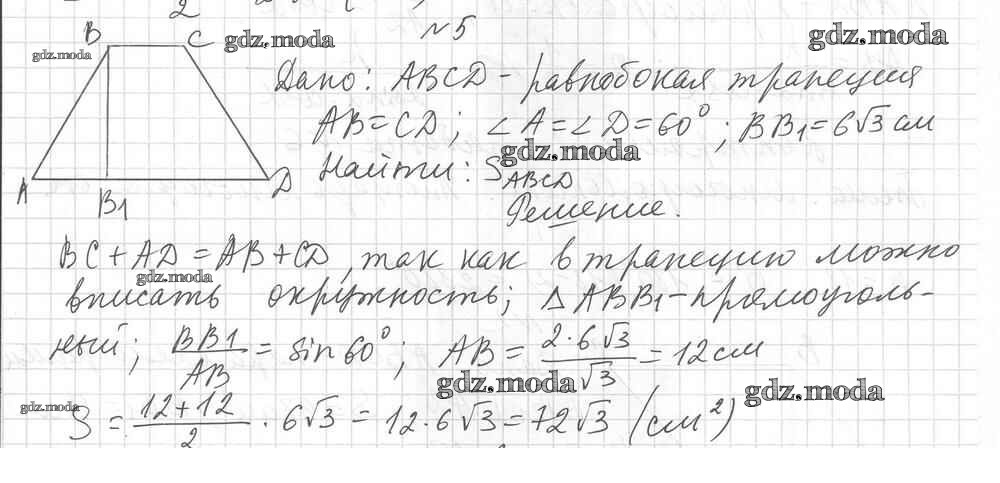 2
№5
B
C
gdz.moda
gdz.moda
gdz.moda
Дано: ABCD - равнобокая трапеция
AB = CD; ∠A = ∠D = 60°; BB₁ = 6√3 см
gdz.moda
Найти: S ABCD
A
D
B1
Решение.
BC + AD = AB + CD, так как в трапецию можно
gdz.moda
вписать окружность; △ABB₁ - прямоуголь-
ный; BB1/AB = sin 60°; AB = 2·6√3/√3 = 12 см
gdz.moda
gdz.moda
gdz.moda
S = 12+12/2 · 6√3 = 12·6√3 = 72√3 (см²)